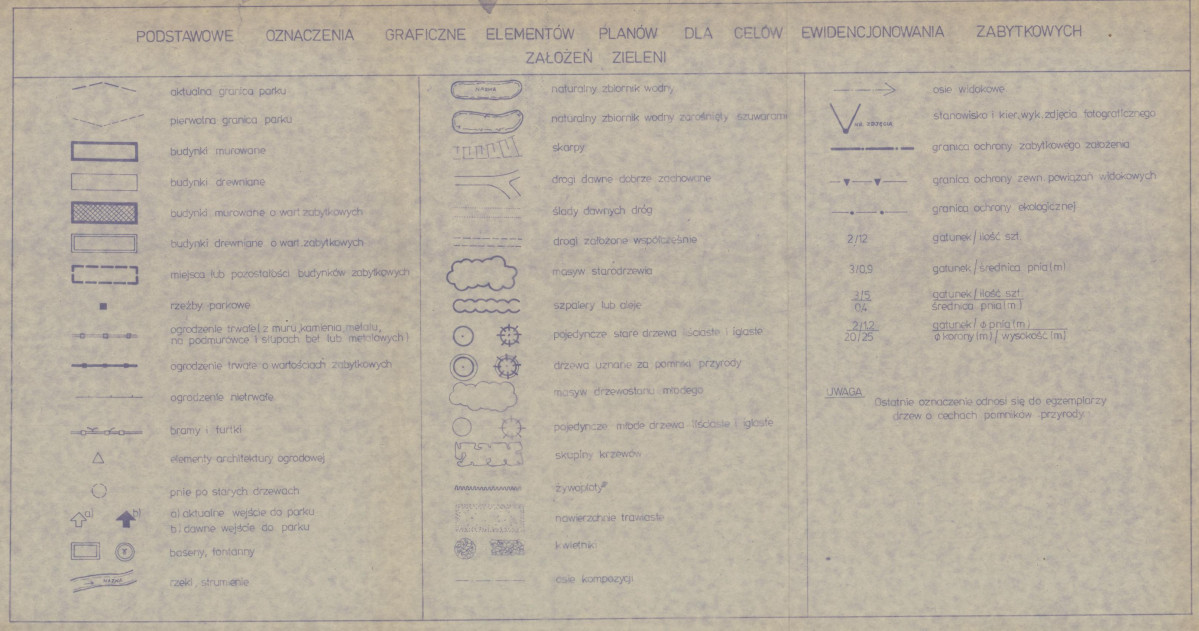 PODSTAWOWE OZNACZENIA GRAFICZNE ELEMENTÓW PLANÓW DLA CELÓW EWIDENCJONOWANIA ZABYTKOWYCH
ZAŁOŻEŃ ZIELENI
aktualna granica parku
pierwotna granica parku
budynki murowane
budynki drewniane
budynki murowane o wart. zabytkowych
budynki drewniane o wart. zabytkowych
miejsca lub pozostałości budynków zabytkowych
rzeźby parkowe
ogrodzenie trwałe ( z muru, kamienia, metalu,
na podmurówce i słupach bet. lub metalowych )
ogrodzenie trwałe o wartościach zabytkowych
ogrodzenie nietrwałe
bramy i furtki
elementy architektury ogrodowej
pnie po starych drzewach
a) b)
a) aktualne wejście do parku
b) dawne wejście do parku
baseny, fontanny
rzeki, strumienie
naturalny zbiornik wodny
naturalny zbiornik wodny zarośnięty szuwarami
skarpy
drogi dawne dobrze zachowane
ślady dawnych dróg
drogi założone współcześnie
masyw starodrzewia
szpalery lub aleje
pojedyncze stare drzewa liściaste i iglaste
drzewa uznane za pomniki przyrody
masyw drzewostanu młodego
pojedyncze młode drzewa liściaste i iglaste
skupiny krzewów
żywopłoty
nawierzchnie trawiaste
kwietniki
osie kompozycji
osie widokowe
NR. ZDJĘCIA
stanowisko i kier. wyk. zdjęcia fotograficznego
granica ochrony zabytkowego założenia
granica ochrony zewn. powiązań widokowych
granica ochrony ekologicznej
2/12 gatunek / ilość szt.
3/0,9 gatunek / średnica pnia (m)
3/5 gatunek / ilość szt.
0,4 średnica pnia (m)
2/1,2 gatunek / ϕ pnia (m)
20/25 ϕ korony (m) / wysokość (m)
UWAGA
Ostatnie oznaczenie odnosi się do egzemplarzy
drzew o cechach pomników przyrody.